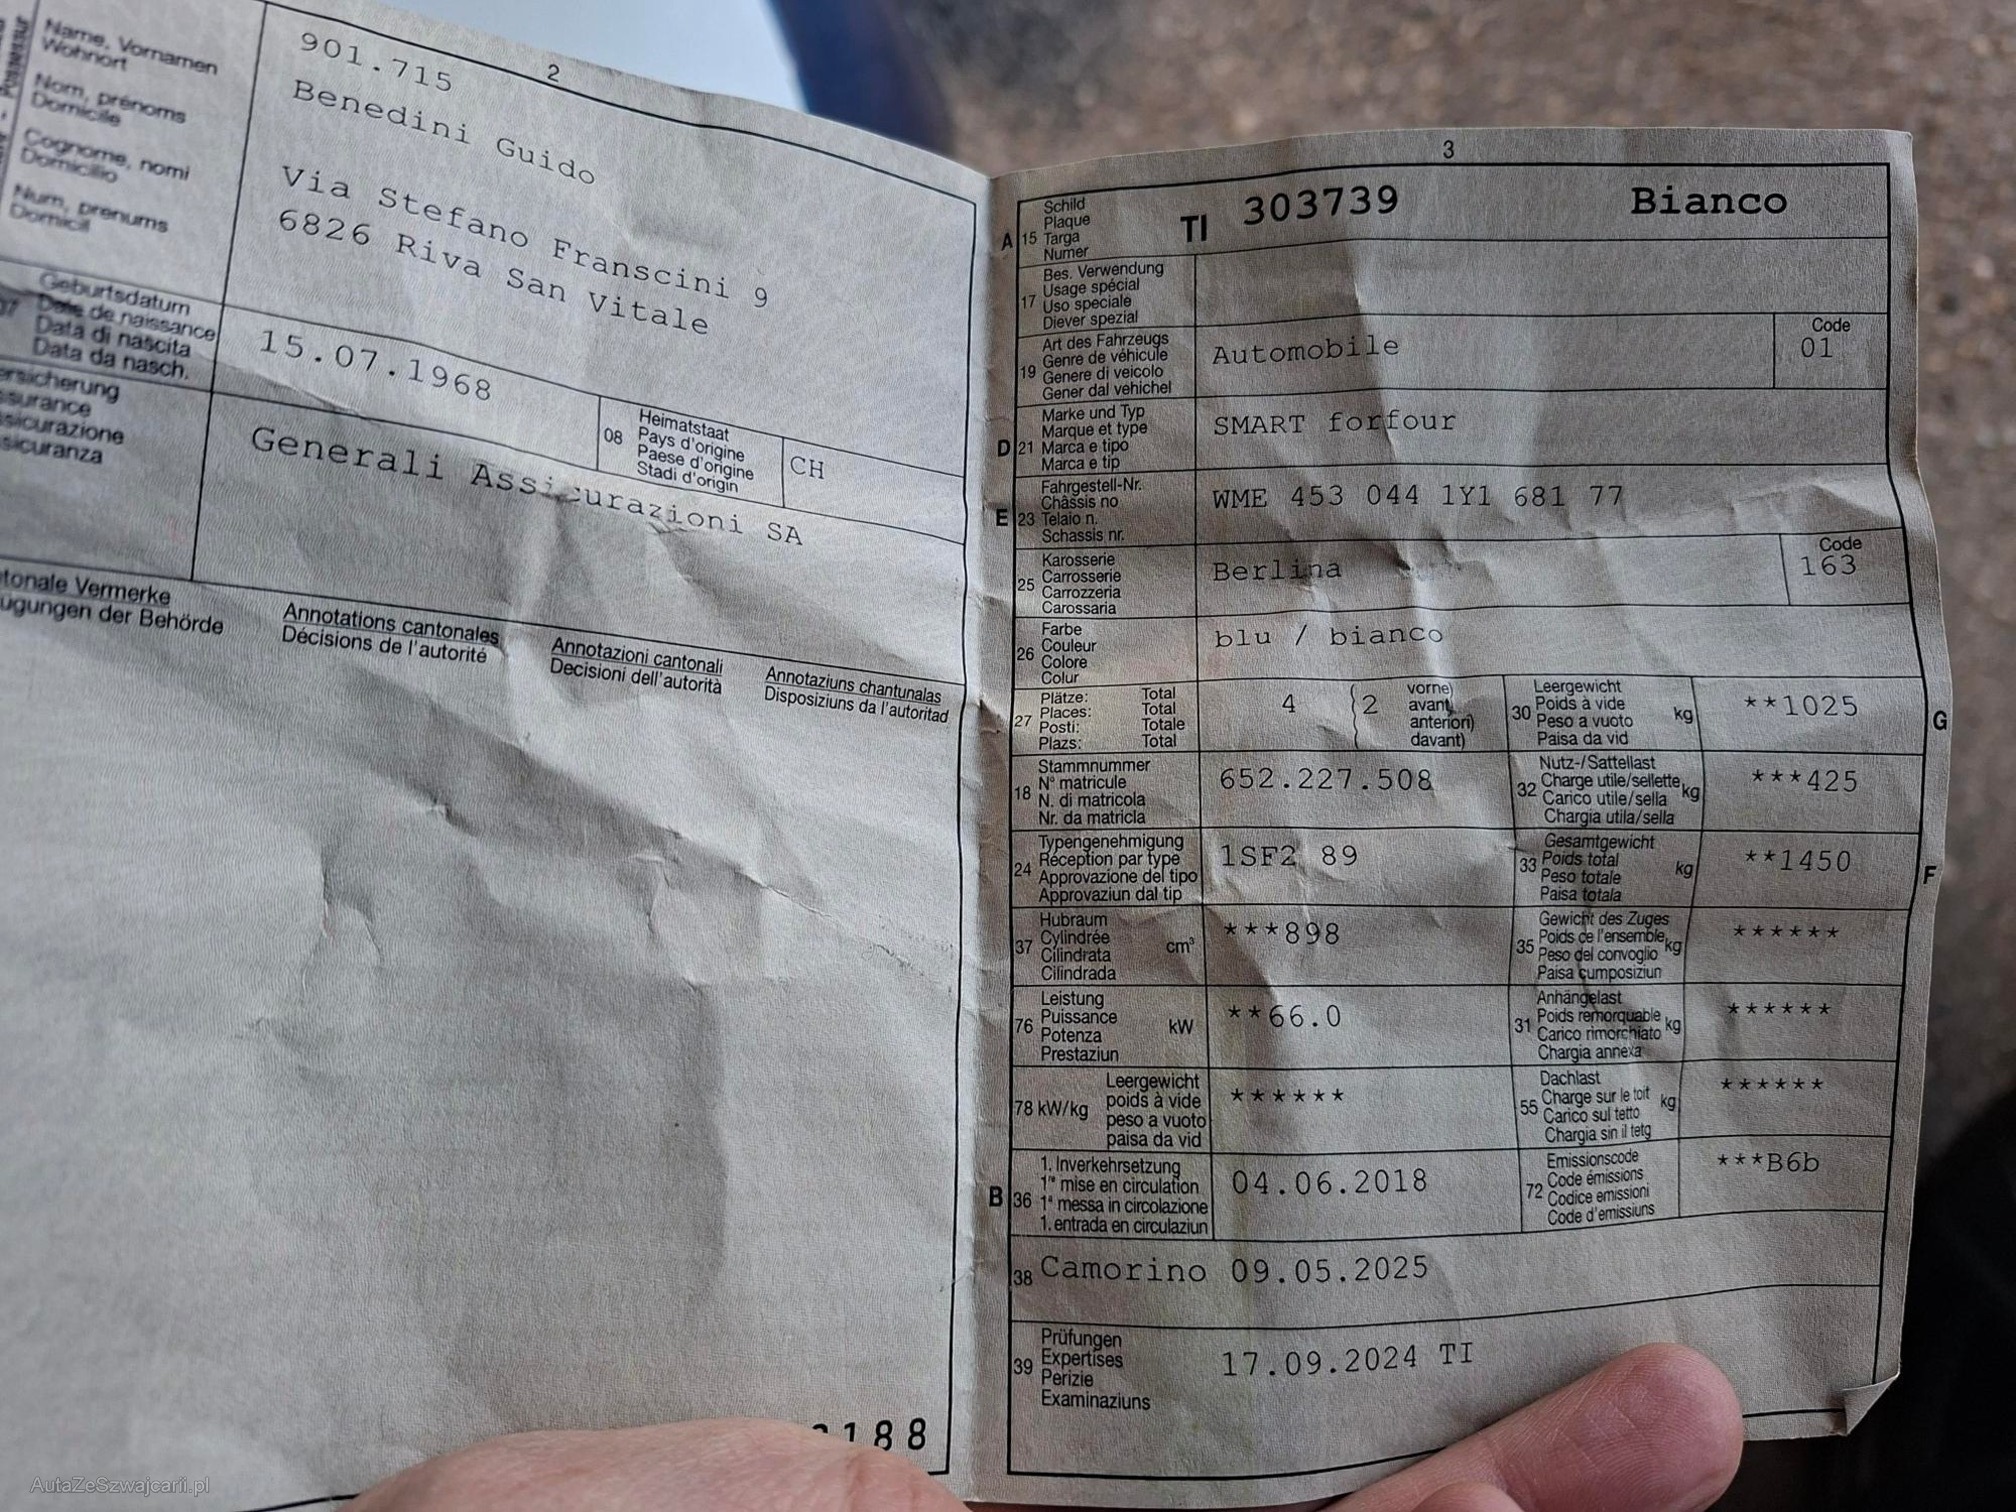 Name, Vornamen
Wohnort
Nom, prénoms
Domicile
Cognome, nomi
Domicilio
Num, prenums
Domicil
901.715
2
Benedini Guido
Via Stefano Franscini 9
6826 Riva San Vitale
07
Geburtsdatum
Date de naissance
Data di nascita
Data da nasch.
15.07.1968
08
Heimatstaat
Pays d'origine
Paese d'origine
Stadi d'origin
CH
ersicherung
ssurance
ssicurazione
ssicuranza
Generali Assicurazioni SA
tonale Vermerke
ügungen der Behörde
Annotations cantonales
Décisions de l'autorité
Annotazioni cantonali
Decisioni dell'autorità
Annotaziuns chantunalas
Disposiziuns da l'autoritad
188
3
A 15
Schild
Plaque
Targa
Numer
TI 303739 Bianco
17
Bes. Verwendung
Usage spécial
Uso speciale
Diever spezial
19
Art des Fahrzeugs
Genre de véhicule
Genere di veicolo
Gener dal vehichel
Automobile
Code
01
D 21
Marke und Typ
Marque et type
Marca e tipo
Marca e tip
SMART forfour
E 23
Fahrgestell-Nr.
Châssis no
Telaio n.
Schassis nr.
WME 453 044 1Y1 681 77
25
Karosserie
Carrosserie
Carrozzeria
Carossaria
Berlina
Code
163
26
Farbe
Couleur
Colore
Colur
blu / bianco
27
Plätze: Total
Places: Total
Posti: Totale
Plazs: Total
4 2
vorne)
avant,
anteriori)
davant)
30
Leergewicht
Poids à vide
Peso a vuoto
Paisa da vid
kg
**1025
G
18
Stammnummer
N° matricule
N. di matricola
Nr. da matricla
652.227.508
32
Nutz-/Sattellast
Charge utile/sellette
Carico utile/sella
Chargia utila/sella
kg
***425
24
Typengenehmigung
Réception par type
Approvazione del tipo
Approvaziun dal tip
1SF2 89
33
Gesamtgewicht
Poids total
Peso totale
Paisa totala
kg
**1450
F
37
Hubraum
Cylindrée
Cilindrata
Cilindrada
cm³
***898
35
Gewicht des Zuges
Poids de l'ensemble
Peso del convoglio
Paisa cumposiziun
kg
******
76
Leistung
Puissance
Potenza
Prestaziun
kW
**66.0
31
Anhängelast
Poids remorquable
Carico rimorchiato
Chargia annexa
kg
******
78 kW/kg
Leergewicht
poids à vide
peso a vuoto
paisa da vid
******
55
Dachlast
Charge sur le toit
Carico sul tetto
Chargia sin il tetg
kg
******
B 36
1. Inverkehrsetzung
1re mise en circulation
1a messa in circolazione
1. entrada en circulaziun
04.06.2018
72
Emissionscode
Code émissions
Codice emissioni
Code d'emissiuns
***B6b
38 Camorino 09.05.2025
39
Prüfungen
Expertises
Perizie
Examinaziuns
17.09.2024 TI
AutaZeSzwajcarii.pl